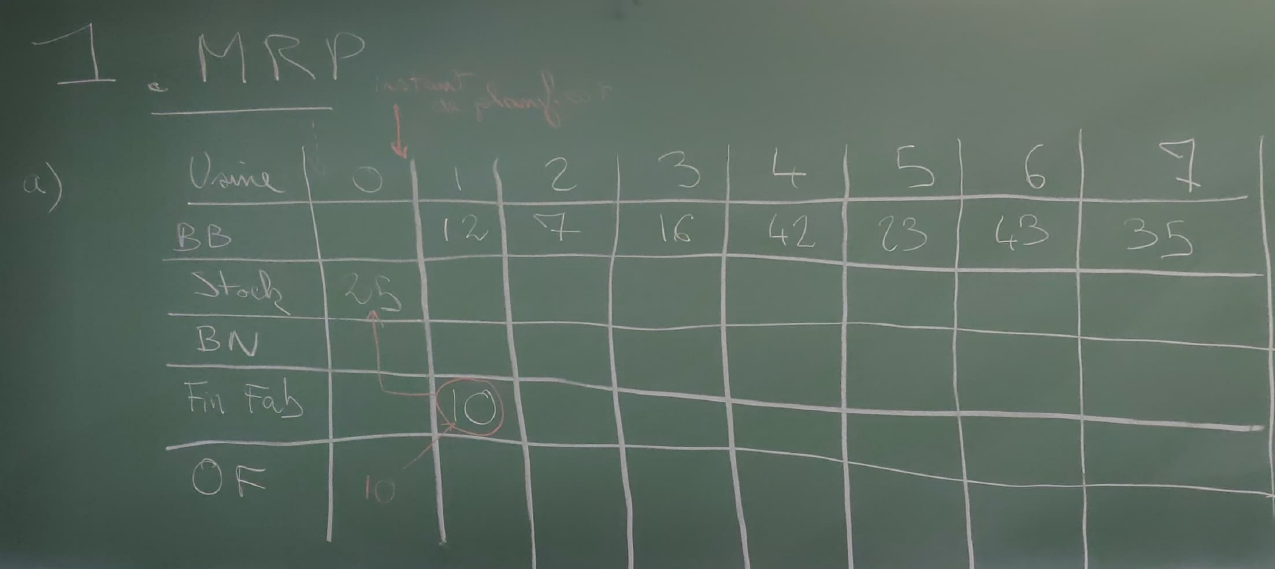 1. MRP
instant
de planif
a)
Usine 0 1 2 3 4 5 6 7
BB 12 7 16 42 23 43 35
Stock 25
BN
Fin Fab 10
OF 10